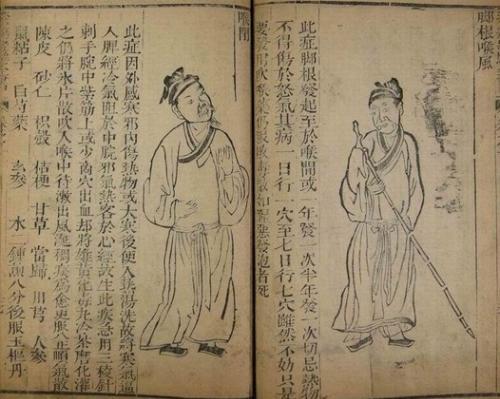 脚根喉風
此症脚根發起至於喉間或一年發一次半年發一次切忌熱物
不得傷於怒氣其病一日行一穴至七日行七穴雖然不妨只是
喉閉
此症因外感寒邪內傷熱物或大寒後便入熱湯洗故將寒氣逼
入脾經冷氣阻於中脘邪氣熱客於心經故生此疾急用三稜針
刺手腕中紫筋上或少商穴出血却將雄黃化毒丸冷茶磨化灌
之仍將氷片散吹入喉中待漱出風
陳皮 砂仁 枳殼 桔梗 甘草 當歸 川芎 人參
鼠粘子 白芍藥 玄參 水一鍾煎八分後服玉樞丹